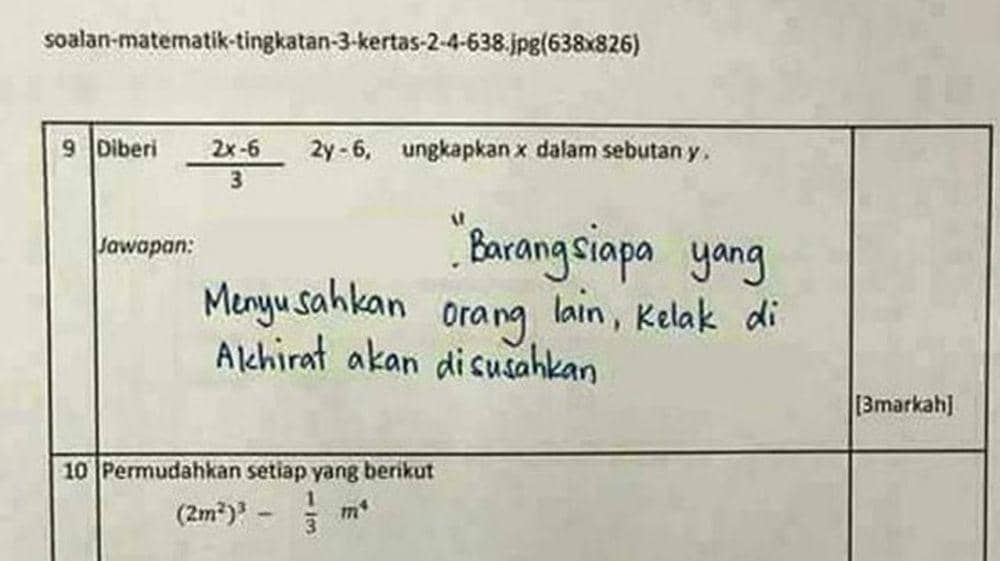 soalan-matematik-tingkatan-3-kertas-2-4-638.jpg(638x826)
9 Diberi 2x-6 2y-6, ungkapkan x dalam sebutan y.
3
Jawapan:
"Barangsiapa yang
Menyusahkan orang lain, Kelak di
Akhirat akan disusahkan
[3markah]
10 Permudahkan setiap yang berikut
(2m²)³ - 1/3 m⁴